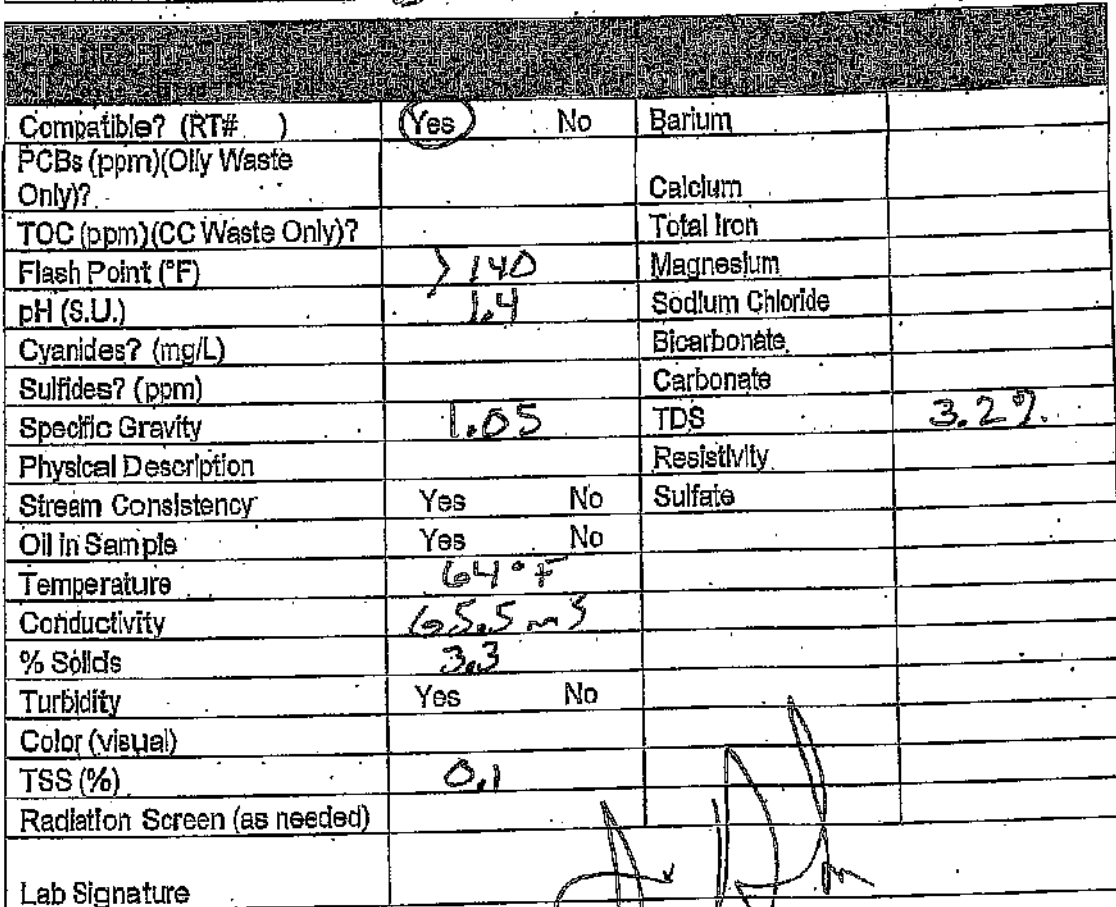 Compatible? (RT# ) Yes No Barium
PCBs (ppm)(Oily Waste
Only)? Calcium
TOC (ppm)(CC Waste Only)? Total Iron
Flash Point (°F) > 140 Magnesium
pH (S.U.) 1.4 Sodium Chloride
Cyanides? (mg/L) Bicarbonate
Sulfides? (ppm) Carbonate
Specific Gravity 1.05 TDS 3.2%
Physical Description Resistivity
Stream Consistency Yes No Sulfate
Oil in Sample Yes No
Temperature 64°F
Conductivity 65.5 mS
% Solids 3.3
Turbidity Yes No
Color (visual)
TSS (%) 0.1
Radiation Screen (as needed)
Lab Signature